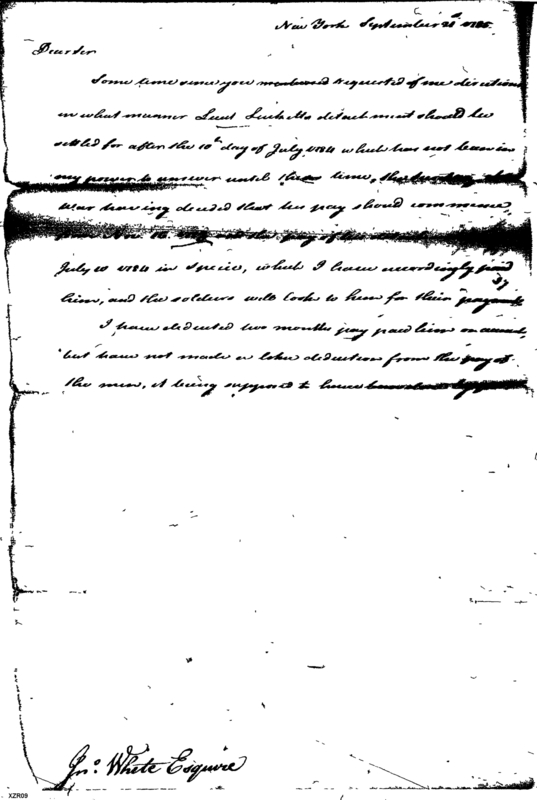 New York September 21st 1785.
Dear sir
Some time since you mentioned & requested of me directions
in what manner Lieut Lucketts detachment should be
settled for after the 10th day of July 1784 which has not been in
my power to answer until this time, the
War having decided that his pay should commence
from Nov. 16 and the pay of his
July 10 1784 in specie, which I have accordingly paid
him, and the soldiers will look to him for their payment
I have deducted two months pay paid him on account,
but have not made a like deduction from the pay of
the men, it being supposed to have
Jno. White Esquire
XZR09